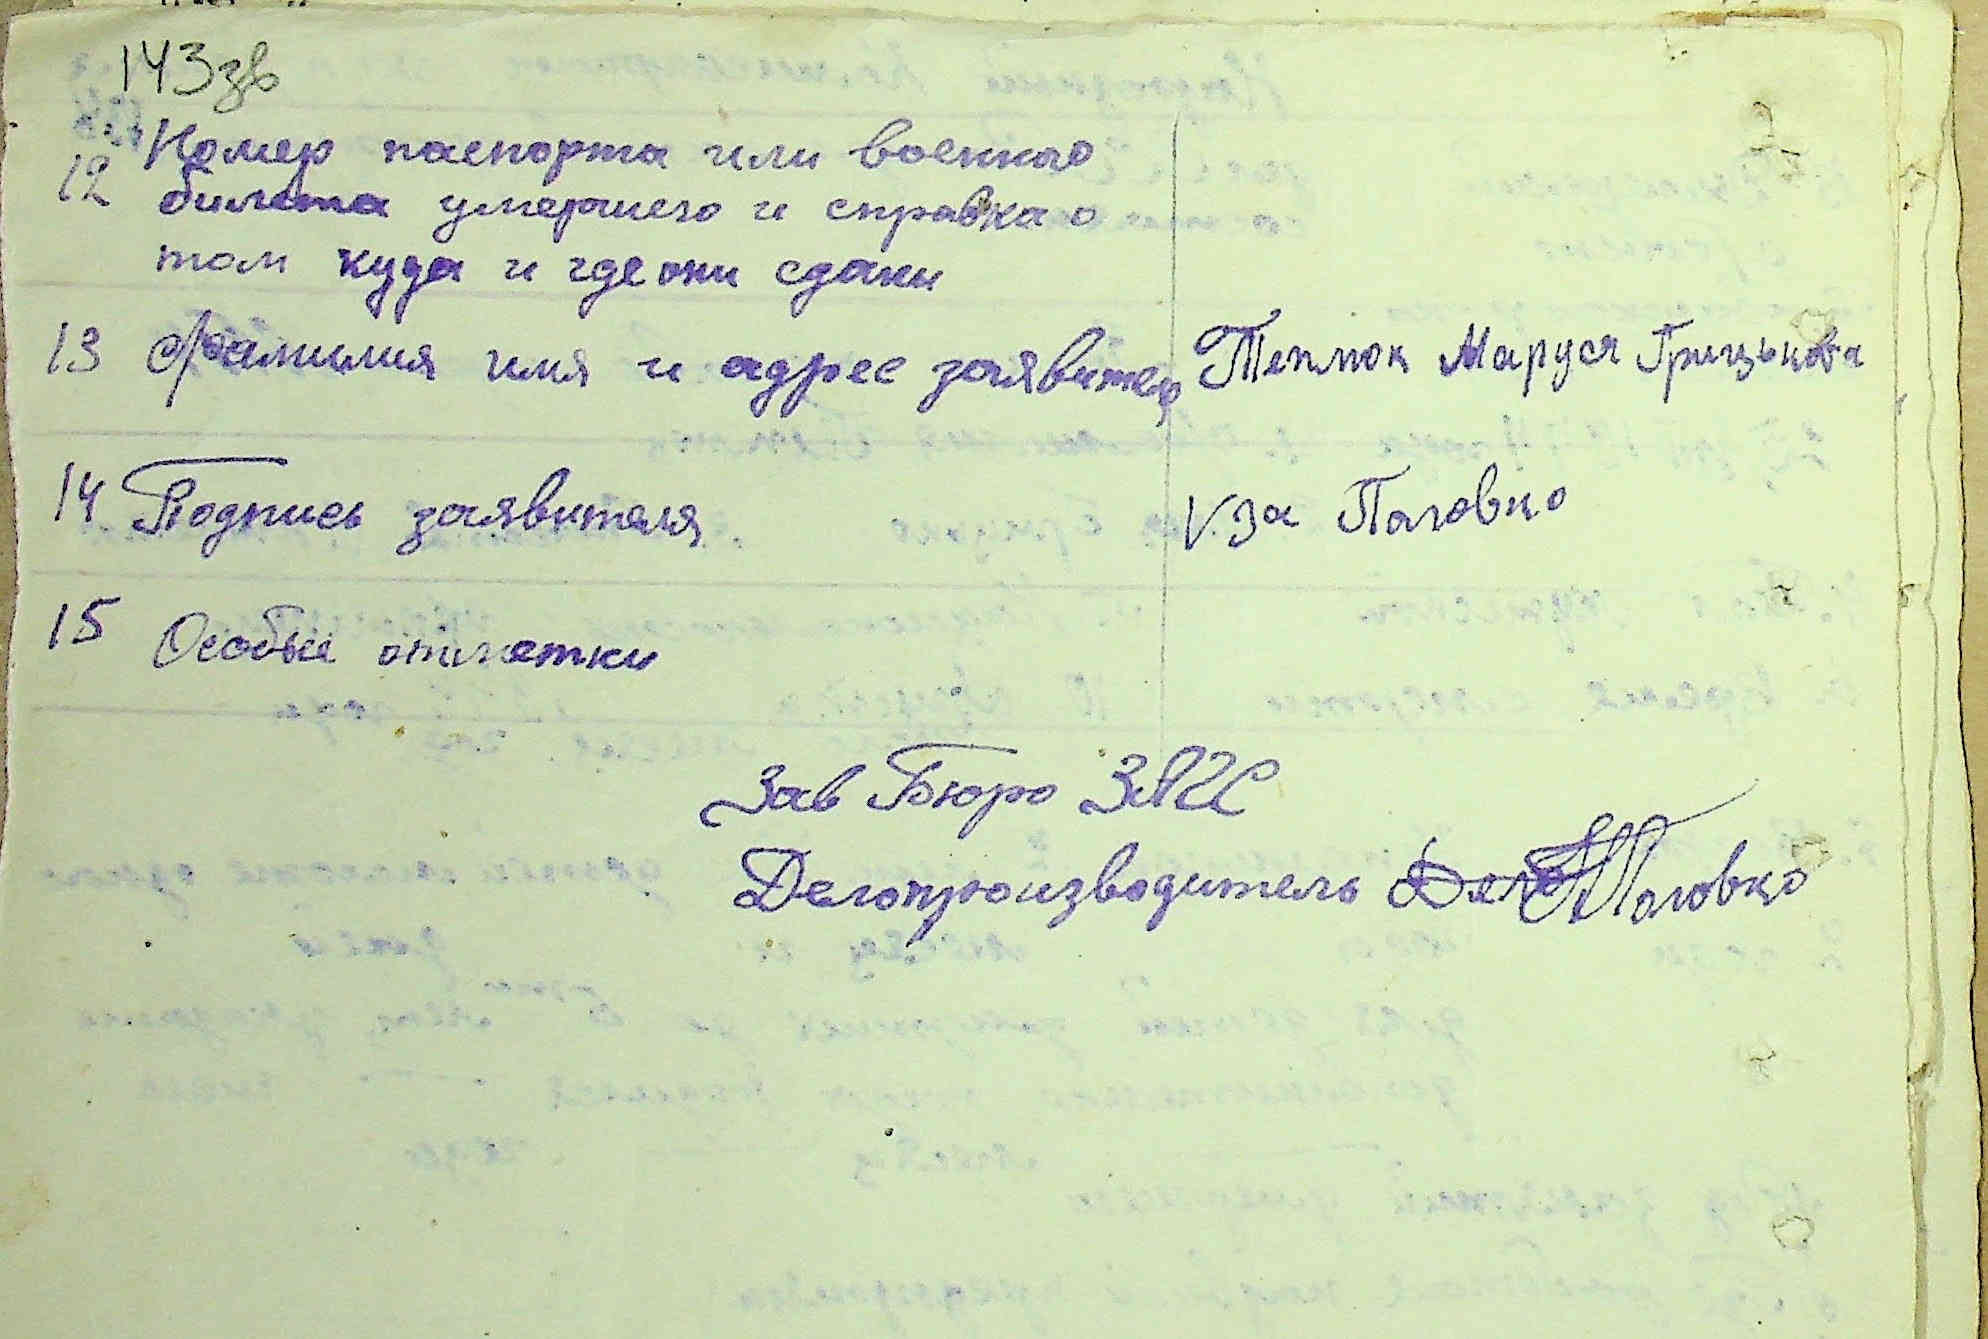 143зв
12 Номер паспорта или военнао
билета умершего и справка о
том куда и где они сданы
13 Фамилия имя и адрес заявителя Теплюк Маруся Грицькова
14 Подпись заявителя V За Паловко
15 Особые отметки
Зав Бюро ЗАГС
Делопроизводитель